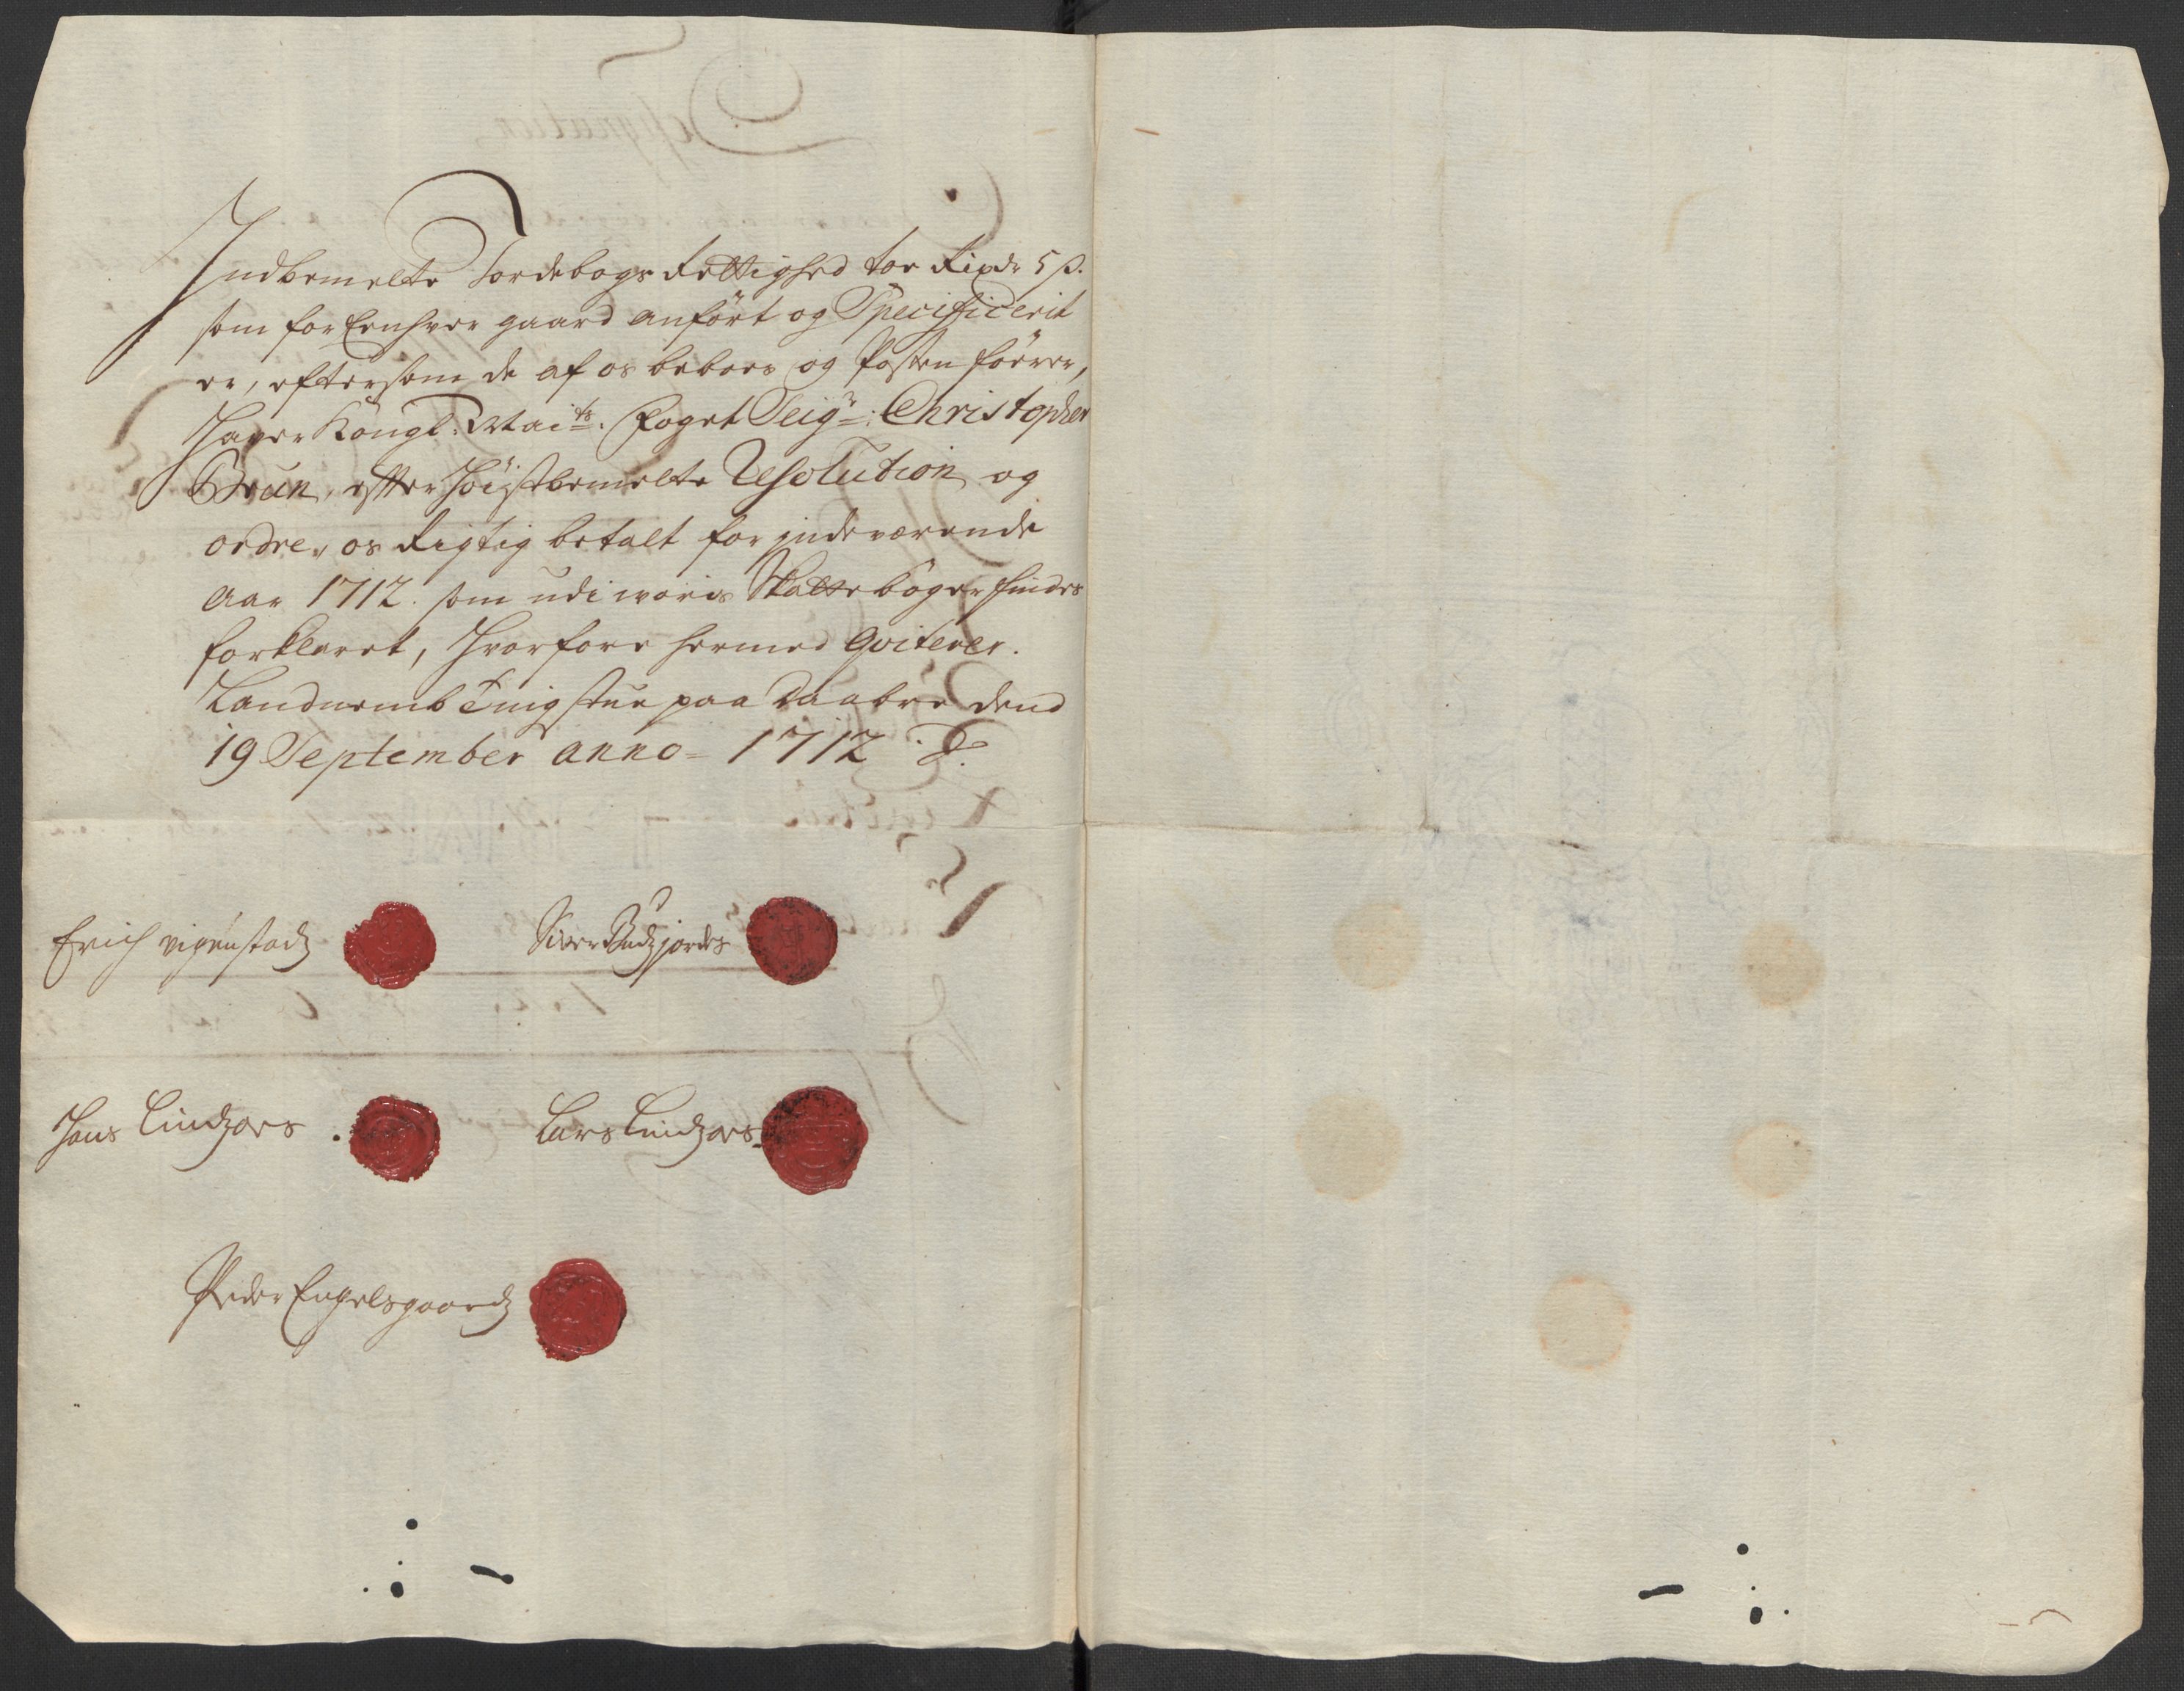 Indbemelte Jordebogs Rettighed toe Rixdr 5 s.
som for Eenhver gaard anfört og Specificerit
er, eftersom de af os beboes og Posten förrer,
Haver Kongl: Mai^ts. Foget Seig^r: Christopher
Brun, efter höigstbemelte Resolution og
ordre, os Rigtig betalt for indeværende
Aar 1712. som udi woris Skattebøger findes
forklaret, Hvorfore hermed Qviterer.
paa dend
19 September anno 1712
Erich vigenstad Siver Budzjordes
Hans Lindzors Lars Lindzors
Peder Engelsgaard